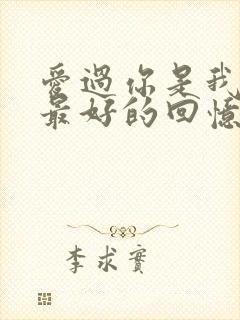 愛過你是我
最好的回憶
李求實